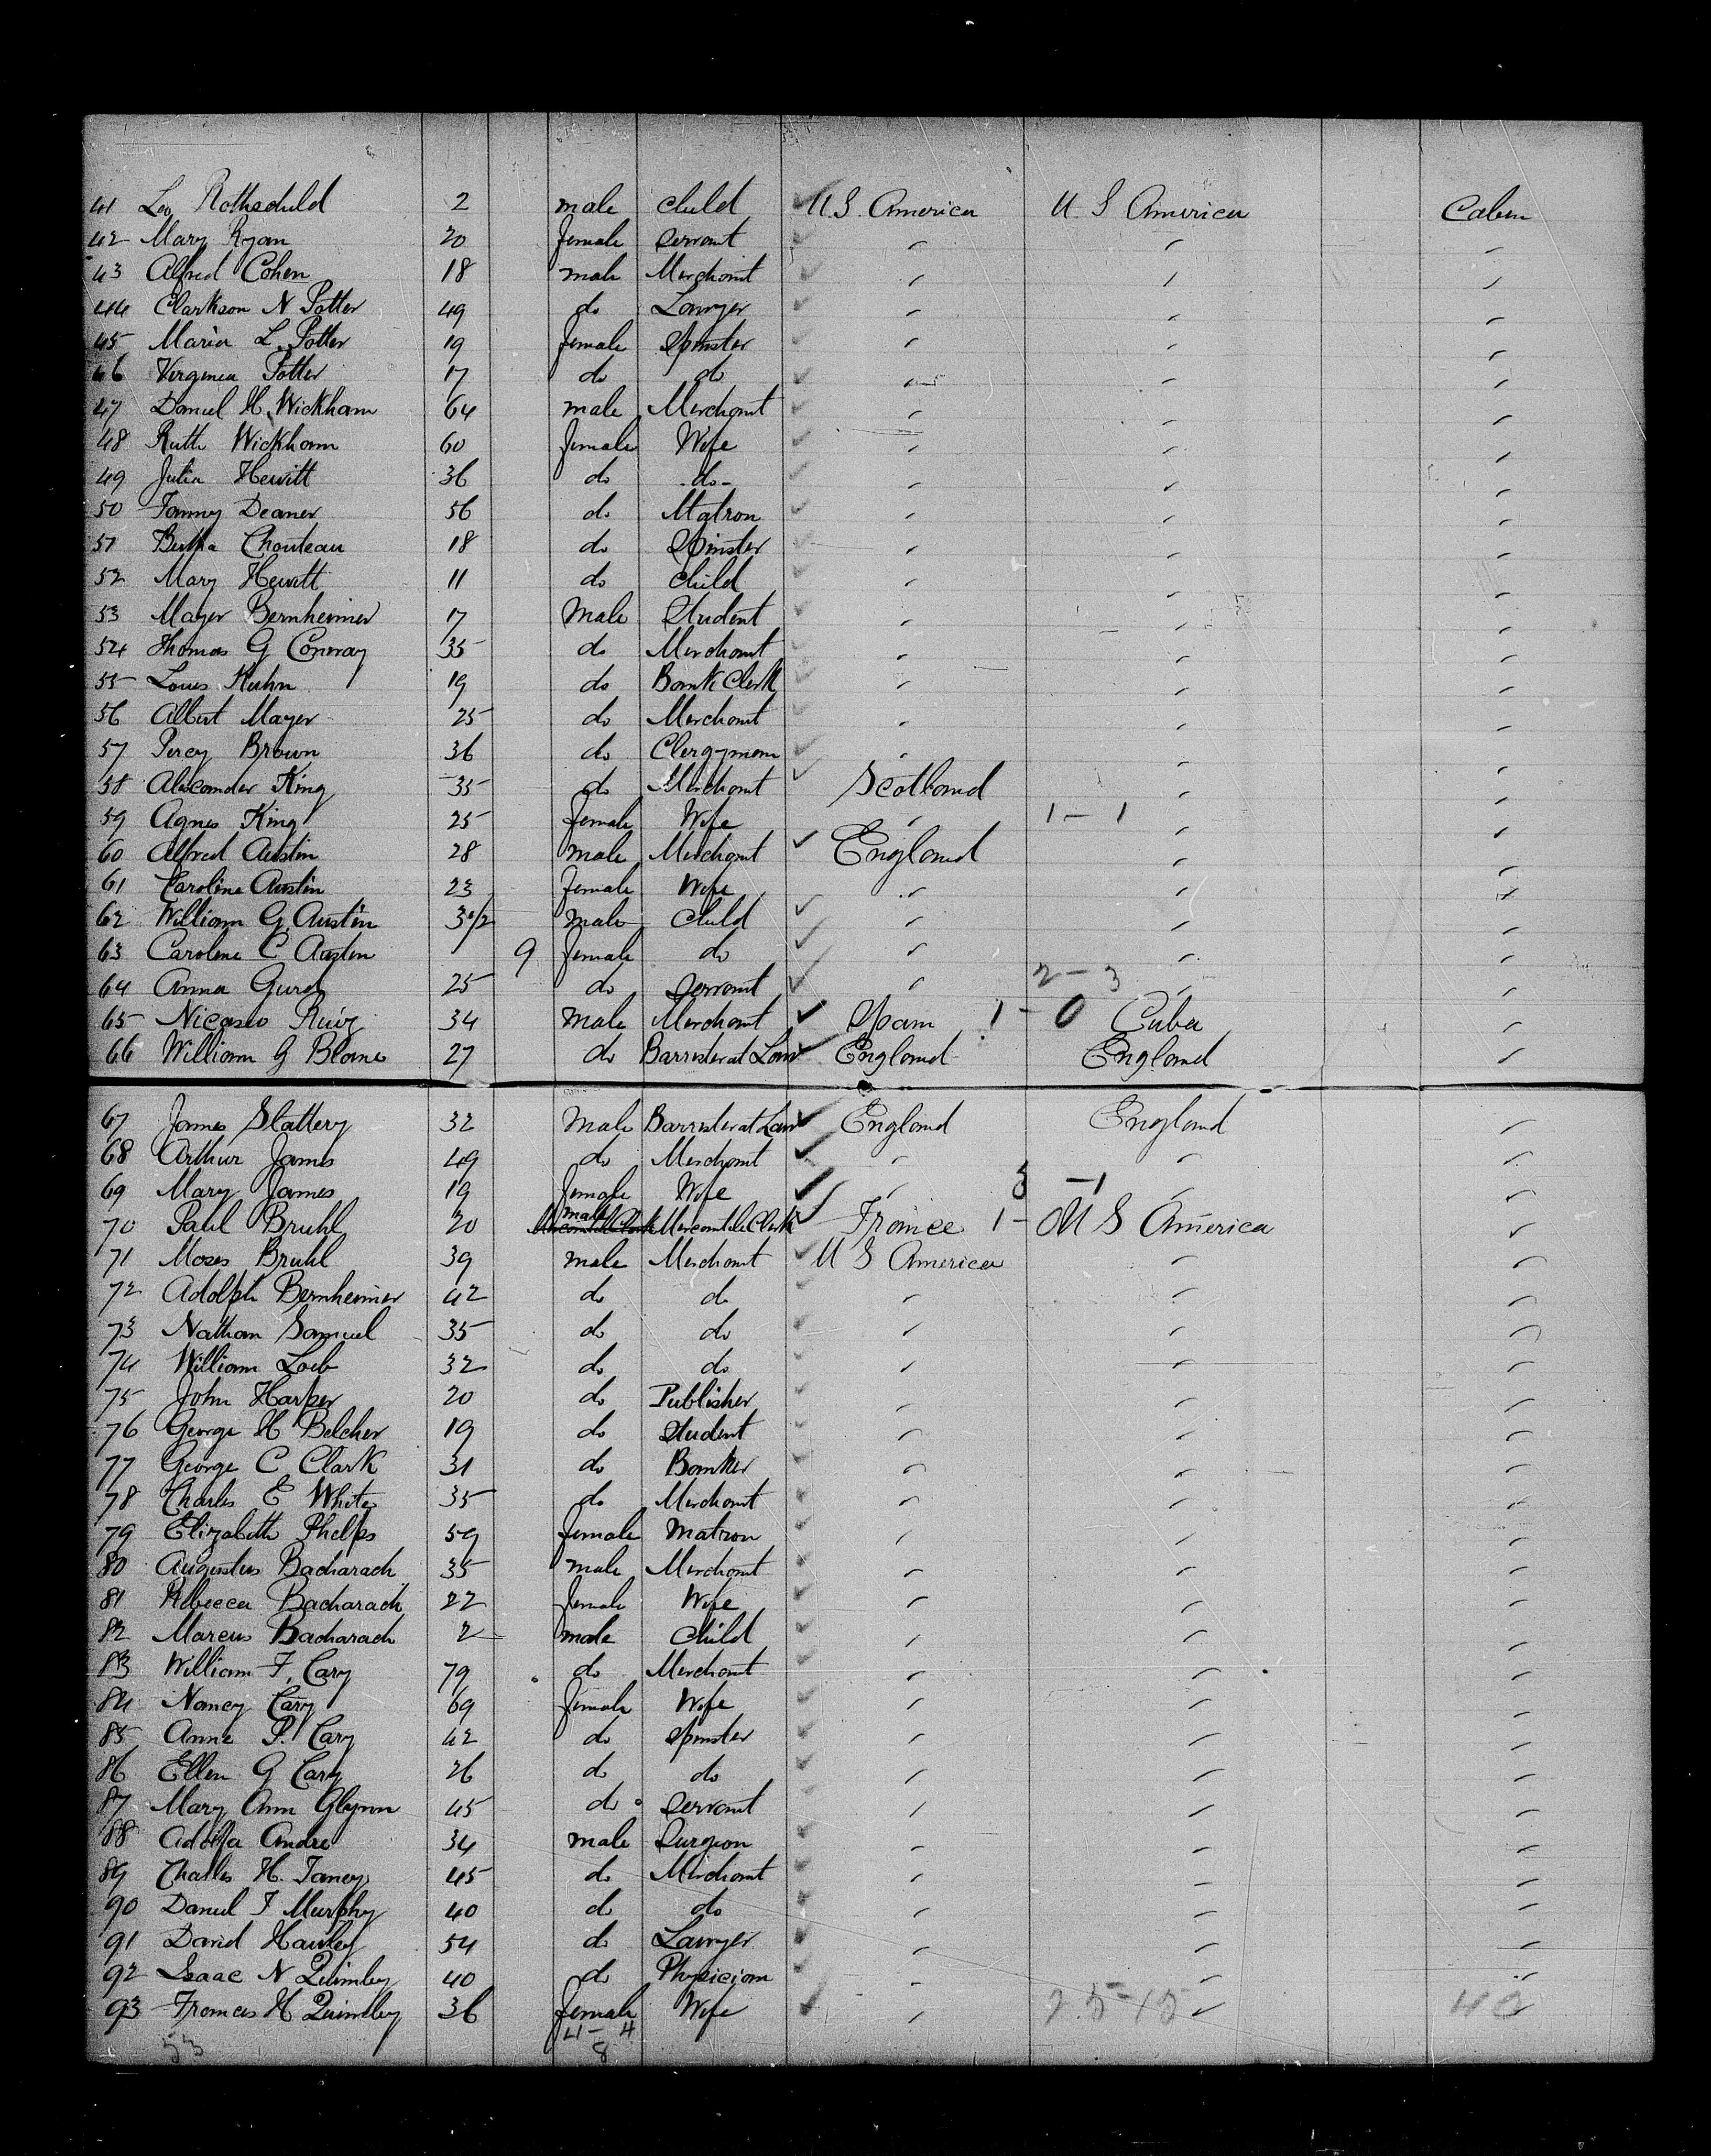 41 Leo Rothschild 2 male child U.S. America U S America Cabin
42 Mary Ryan 20 female Servant " " "
43 Alfred Cohen 18 male Merchant " " "
44 Clarkson N Potter 49 do Lawyer " " "
45 Maria L. Potter 19 female Spinster " " "
46 Virginia Potter 17 do do " " "
47 Daniel H. Wickham 64 male Merchant " " "
48 Ruth Wickham 60 female Wife " " "
49 Julia Hewitt 36 do do " " "
50 Fanny Deaner 56 do Matron " " "
51 Bertha Chouteau 18 do Spinster " " "
52 Mary Hewitt 11 do child " " "
53 Mayer Bernheimer 17 Male Student " " "
54 Thomas G Conway 35 do Merchant " " "
55 Louis Kuhn 19 do Bank Clerk " " "
56 Albert Mayer 25 do Merchant " " "
57 Percy Brown 36 do Clergyman " " "
58 Alexander King 35 do Merchant Scotland " "
59 Agnes King 25 female Wife " 1 - 1 " "
60 Alfred Austin 28 male Merchant England " "
61 Caroline Austin 23 female Wife " " "
62 William G. Austin 3 1/2 male Child " " "
63 Caroline C Austin 9 female do " " "
64 Anna Gurd 25 do Servant " 2 - 3 " "
65 Nicasio Ruiz 34 Male Merchant Spain 1 - 0 Cuba "
66 William G Blane 27 do Barrister at Law England England "
67 James Slattery 32 Male Barrister at Law England England "
68 Arthur James 49 do Merchant " " "
69 Mary James 19 female Wife " - 1 " "
70 Paul Bruhl 20 male Mercantile Clerk France 1 - 0 U S America "
71 Moses Bruhl 39 male Merchant U S America " "
72 Adolph Bernheimer 42 do do " " "
73 Nathan Samuel 35 do do " " "
74 William Loeb 32 do do " " "
75 John Harper 20 do Publisher " " "
76 George H Belcher 19 do Student " " "
77 George C Clark 31 do Banker " " "
78 Charles E White 35 do Merchant " " "
79 Elizabeth Phelps 59 female Matron " " "
80 Augustus Bacharach 35 male Merchant " " "
81 Rebecca Bacharach 22 female Wife " " "
82 Marcus Bacharach 2 male Child " " "
83 William F. Cary 79 do Merchant " " "
84 Nancy Cary 69 female Wife " " "
85 Anne P. Cary 42 do Spinster " " "
86 Ellen G Cary 26 do do " " "
87 Mary Ann Glynn 45 do Servant " " "
88 Andre 34 male Surgeon " " "
89 Charles H. Taney 45 do Merchant " " "
90 Daniel F Murphy 40 do do " " "
91 David Hawley 54 do Lawyer " " "
92 Isaac N Quimby 40 do Physician " " "
93 Frances H Quimby 36 female Wife " 25-15 " 40
53 4 - 4
8